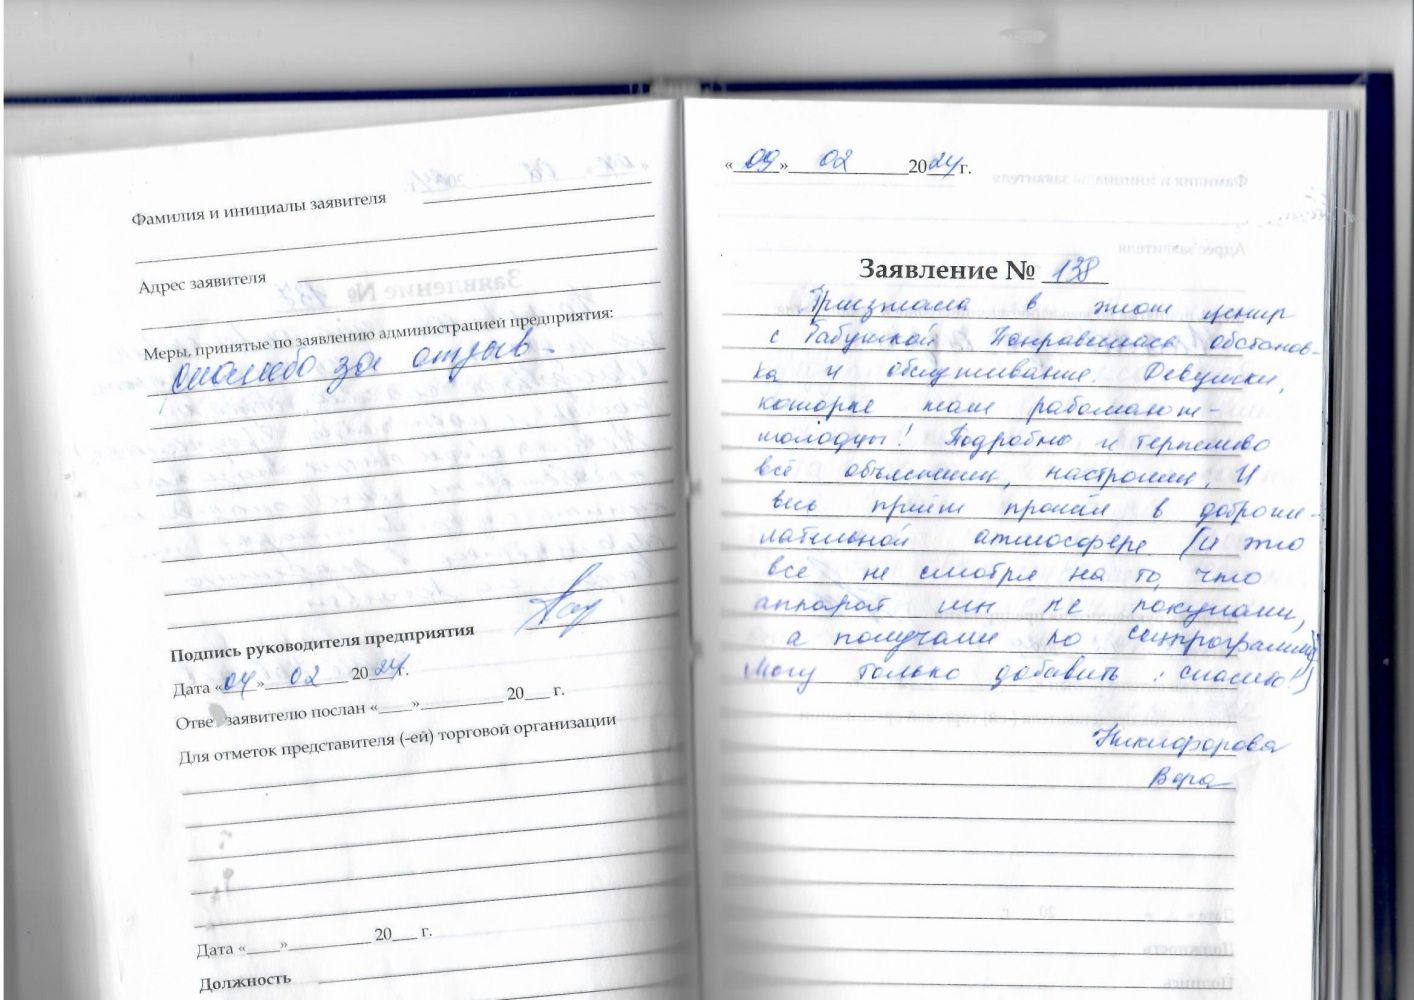 Фамилия и инициалы заявителя
Адрес заявителя
Меры, принятые по заявлению администрацией предприятия:
Спасибо за отзыв.
Подпись руководителя предприятия
Дата «04» 02 2024 г.
Ответ заявителю послан «____»__________ 20___ г.
Для отметок представителя (-ей) торговой организации
Дата «____»__________ 20___ г.
Должность
«09» 02 2024 г.
Заявление № 138
Приезжала в этот центр
с бабушкой. Понравилась обстанов-
ка и обслуживание. Девушки,
которые там работают –
молодцы! Подробно и терпеливо
всё объяснили, настроили. И
весь приём прошёл в доброже-
лательной атмосфере (и это
всё не смотря на то, что
аппарат мы не покупали,
а получали по соцпрограмме)
Могу только добавить: спасибо!)
Никифорова
Вера